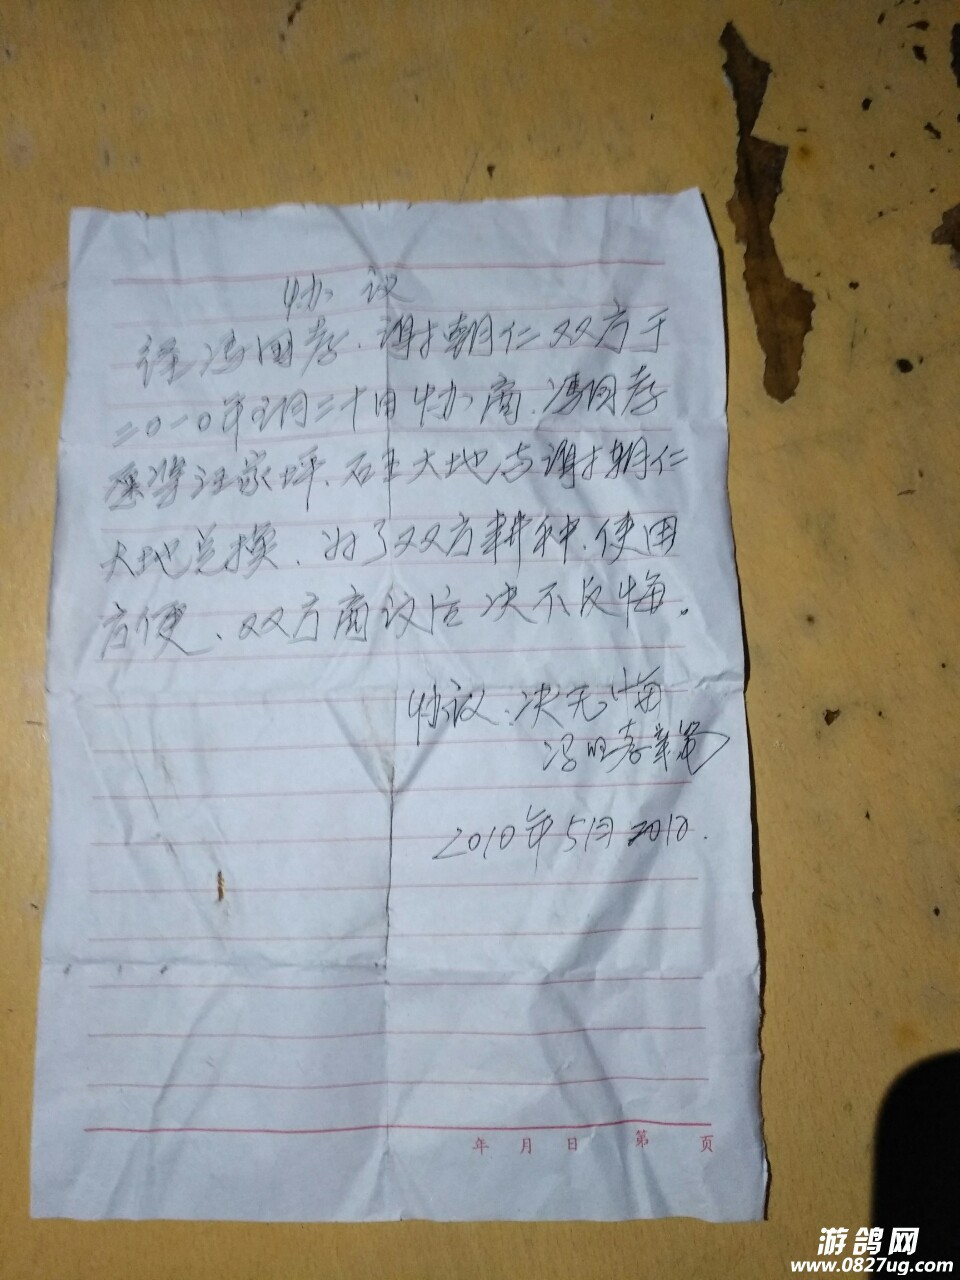 协议
经冯国孝、谢朝仁双方于
二〇一〇年五月二十日协商、冯国孝
汪家坪、石王大地与谢朝仁
大地兑换、为了双方耕种、使用
方便、双方商议后决不反悔。
协议:决无悔
冯国孝
2010年5月2010.
年 月 日 第 页
游鸽网
www.0827ug.com